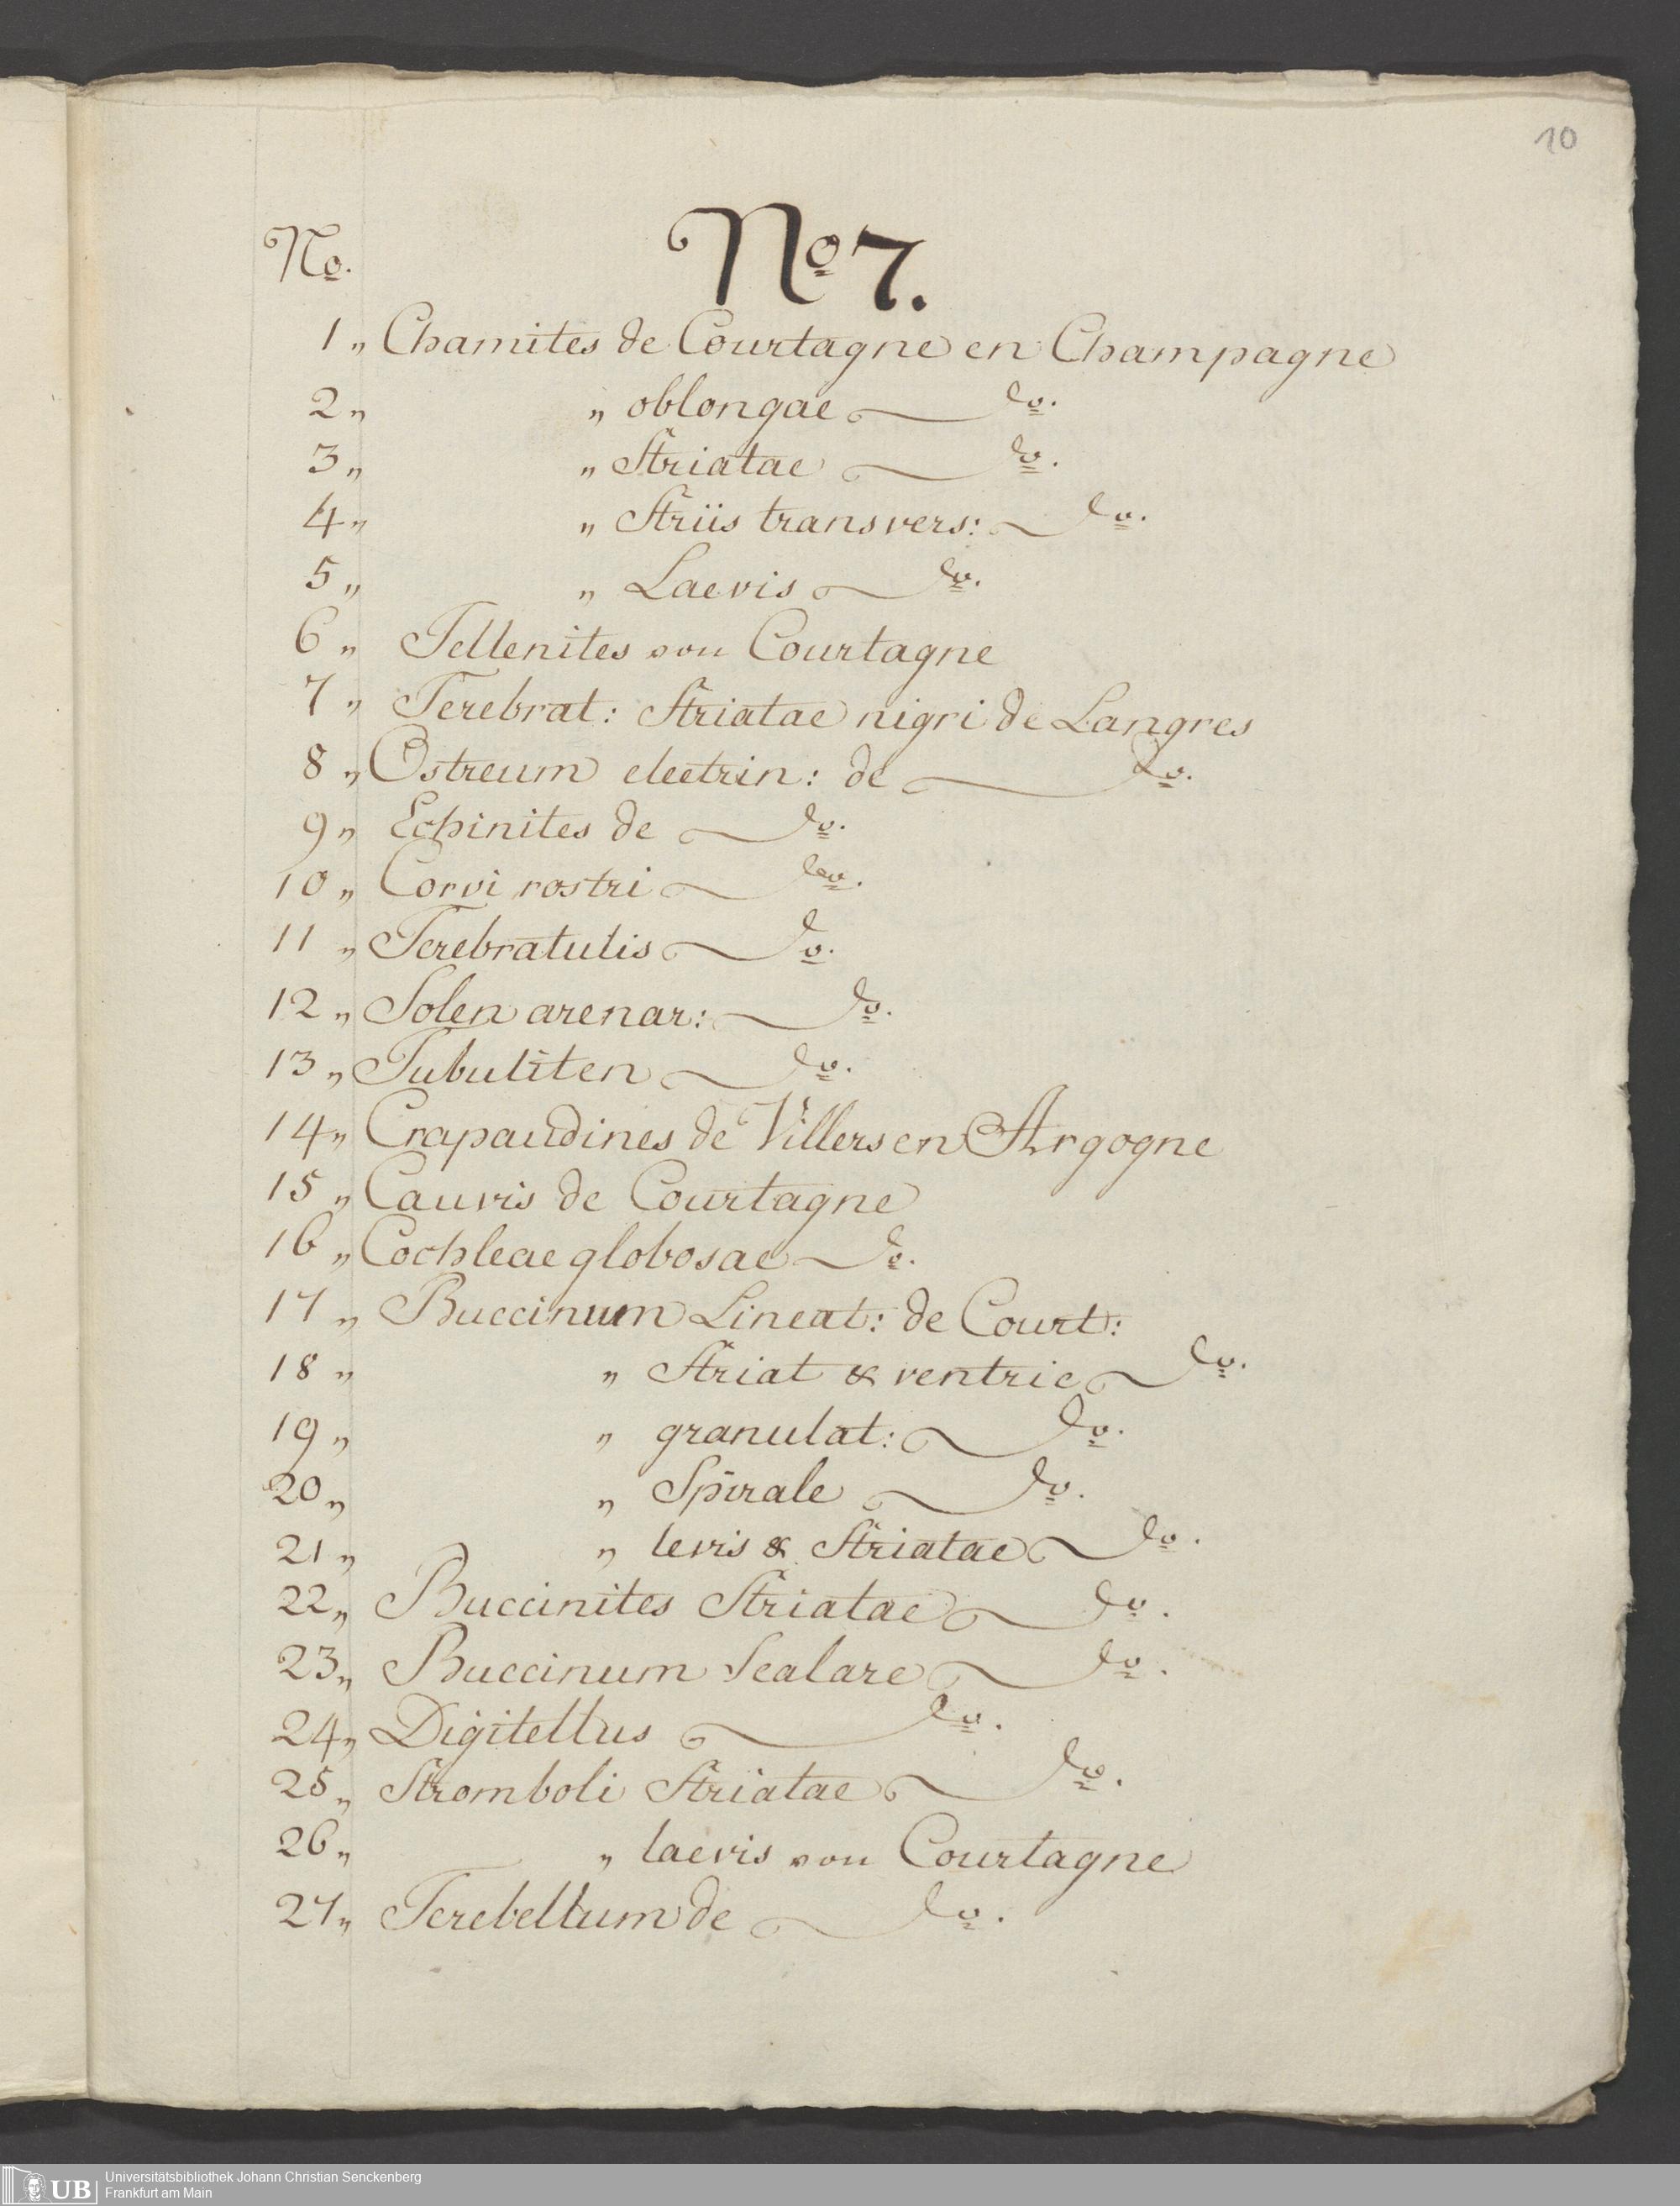 10
No.
No 7.
1 „ Chamites de Courtagne en Champagne
2 „ „ oblongae do.
3 „ „ Striatae do.
4 „ „ Striis transvers: do.
5 „ „ Laevis do.
6 „ Tellenites von Courtagne
7 „ Terebrat: Striatae nigri de Langres
8 „ Ostreum electrin: de do.
9 „ Echinites de do.
10 „ Corvi rostri do.
11 „ Terebratulis do.
12 „ Solen arenar: do.
13 „ Tubuliten do.
14 „ Crapaudines de Villers en Argogne
15 „ Cauris de Courtagne
16 „ Cochleae globosae do.
17 „ Buccinum Lineat: de Court:
18 „ „ Striat & ventric do.
19 „ „ granulat: do.
20 „ „ Spirale do.
21 „ „ levis & Striatae do.
22 „ Buccinites Striatae do.
23 „ Buccinum Scalare do.
24 „ Digitellus do.
25 „ Stromboli Striatae do.
26 „ „ laevis von Courtagne
27 „ Terebellum de do.
UB Universitätsbibliothek Johann Christian Senckenberg
Frankfurt am Main